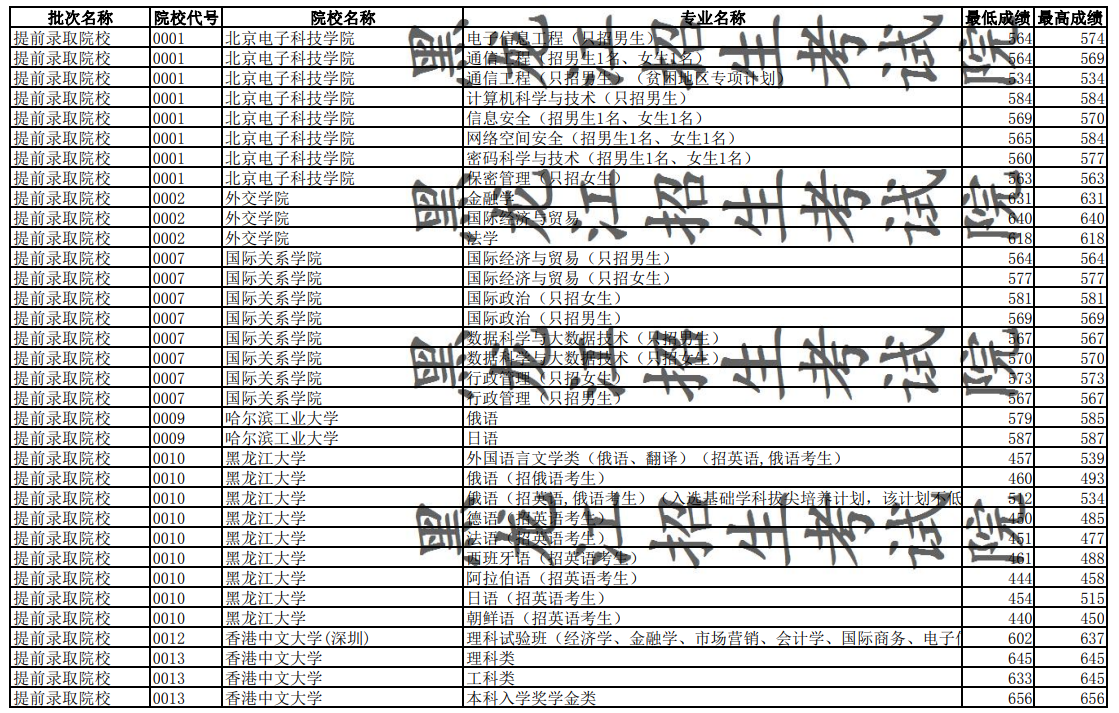 批次名称 院校代号 院校名称 专业名称 最低成绩 最高成绩
提前录取院校 0001 北京电子科技学院 电子信息工程（只招男生） 564 574
提前录取院校 0001 北京电子科技学院 通信工程（招男生1名、女生1名） 564 569
提前录取院校 0001 北京电子科技学院 通信工程（只招男生）（贫困地区专项计划） 534 534
提前录取院校 0001 北京电子科技学院 计算机科学与技术（只招男生） 584 584
提前录取院校 0001 北京电子科技学院 信息安全（招男生1名、女生1名） 569 570
提前录取院校 0001 北京电子科技学院 网络空间安全（招男生1名、女生1名） 565 584
提前录取院校 0001 北京电子科技学院 密码科学与技术（招男生1名、女生1名） 560 577
提前录取院校 0001 北京电子科技学院 保密管理（只招女生） 563 563
提前录取院校 0002 外交学院 金融学 631 631
提前录取院校 0002 外交学院 国际经济与贸易 640 640
提前录取院校 0002 外交学院 法学 618 618
提前录取院校 0007 国际关系学院 国际经济与贸易（只招男生） 564 564
提前录取院校 0007 国际关系学院 国际经济与贸易（只招女生） 577 577
提前录取院校 0007 国际关系学院 国际政治（只招女生） 581 581
提前录取院校 0007 国际关系学院 国际政治（只招男生） 569 569
提前录取院校 0007 国际关系学院 数据科学与大数据技术（只招男生） 567 567
提前录取院校 0007 国际关系学院 数据科学与大数据技术（只招女生） 570 570
提前录取院校 0007 国际关系学院 行政管理（只招女生） 573 573
提前录取院校 0007 国际关系学院 行政管理（只招男生） 567 567
提前录取院校 0009 哈尔滨工业大学 俄语 579 585
提前录取院校 0009 哈尔滨工业大学 日语 587 587
提前录取院校 0010 黑龙江大学 外国语言文学类（俄语、翻译）（招英语,俄语考生） 457 539
提前录取院校 0010 黑龙江大学 俄语（招俄语考生） 460 493
提前录取院校 0010 黑龙江大学 俄语（招英语,俄语考生）（入选基础学科拔尖培养计划，该计划不低 512 534
提前录取院校 0010 黑龙江大学 德语（招英语考生） 450 485
提前录取院校 0010 黑龙江大学 法语（招英语考生） 451 477
提前录取院校 0010 黑龙江大学 西班牙语（招英语考生） 461 488
提前录取院校 0010 黑龙江大学 阿拉伯语（招英语考生） 444 458
提前录取院校 0010 黑龙江大学 日语（招英语考生） 454 515
提前录取院校 0010 黑龙江大学 朝鲜语（招英语考生） 440 450
提前录取院校 0012 香港中文大学(深圳) 理科试验班（经济学、金融学、市场营销、会计学、国际商务、电子 602 637
提前录取院校 0013 香港中文大学 理科类 645 645
提前录取院校 0013 香港中文大学 工科类 633 645
提前录取院校 0013 香港中文大学 本科入学奖学金类 656 656
黑龙江招生考试院
黑龙江招生考试院
黑龙江招生考试院
黑龙江招生考试院